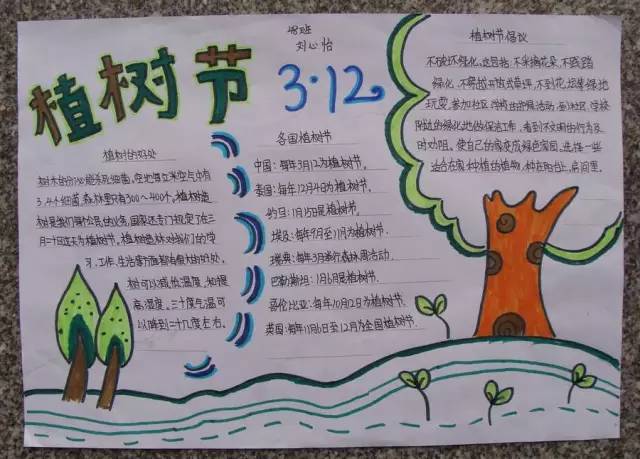 植树节
3·12
刘心怡
植树的好处
树木的分泌物能杀死细菌,空地每立米空气中有
3、4个细菌,森林里只有300～400个,植树造
树是我们每个公民的义务,国家还专门规定了在
三月十二日这天为植树节,植树造林对我们的学
习、工作、生活等方面都有很大的好处。
树可以减低温度,和提
高湿度。三十度气温可
以降到二十几度左右。
各国植树节
中国:每年3月12为植树节。
泰国:每年12月4日为植树节。
约旦:1月15日是植树节。
埃及:每年9月至11月为植树节。
瑞典:每年3月举行森林周活动。
巴勒斯坦:1月6日是植树节。
哥伦比亚:每年10月12日为植树节
英国:每年11月6日至12月为全国植树节。
植树节倡议
不破坏绿化,这包括:不采摘花朵、不践踏
绿化、不翻越开放式草坪、不到花坛等绿地
玩耍,参加社区、学校的护绿活动,到社区、学校
附近的绿化地做保洁工作,看到不文明的行为及
时劝阻。使自己的家变成绿色家园,选择一些
适合在家种植的植物,种在阳台上、房间里。